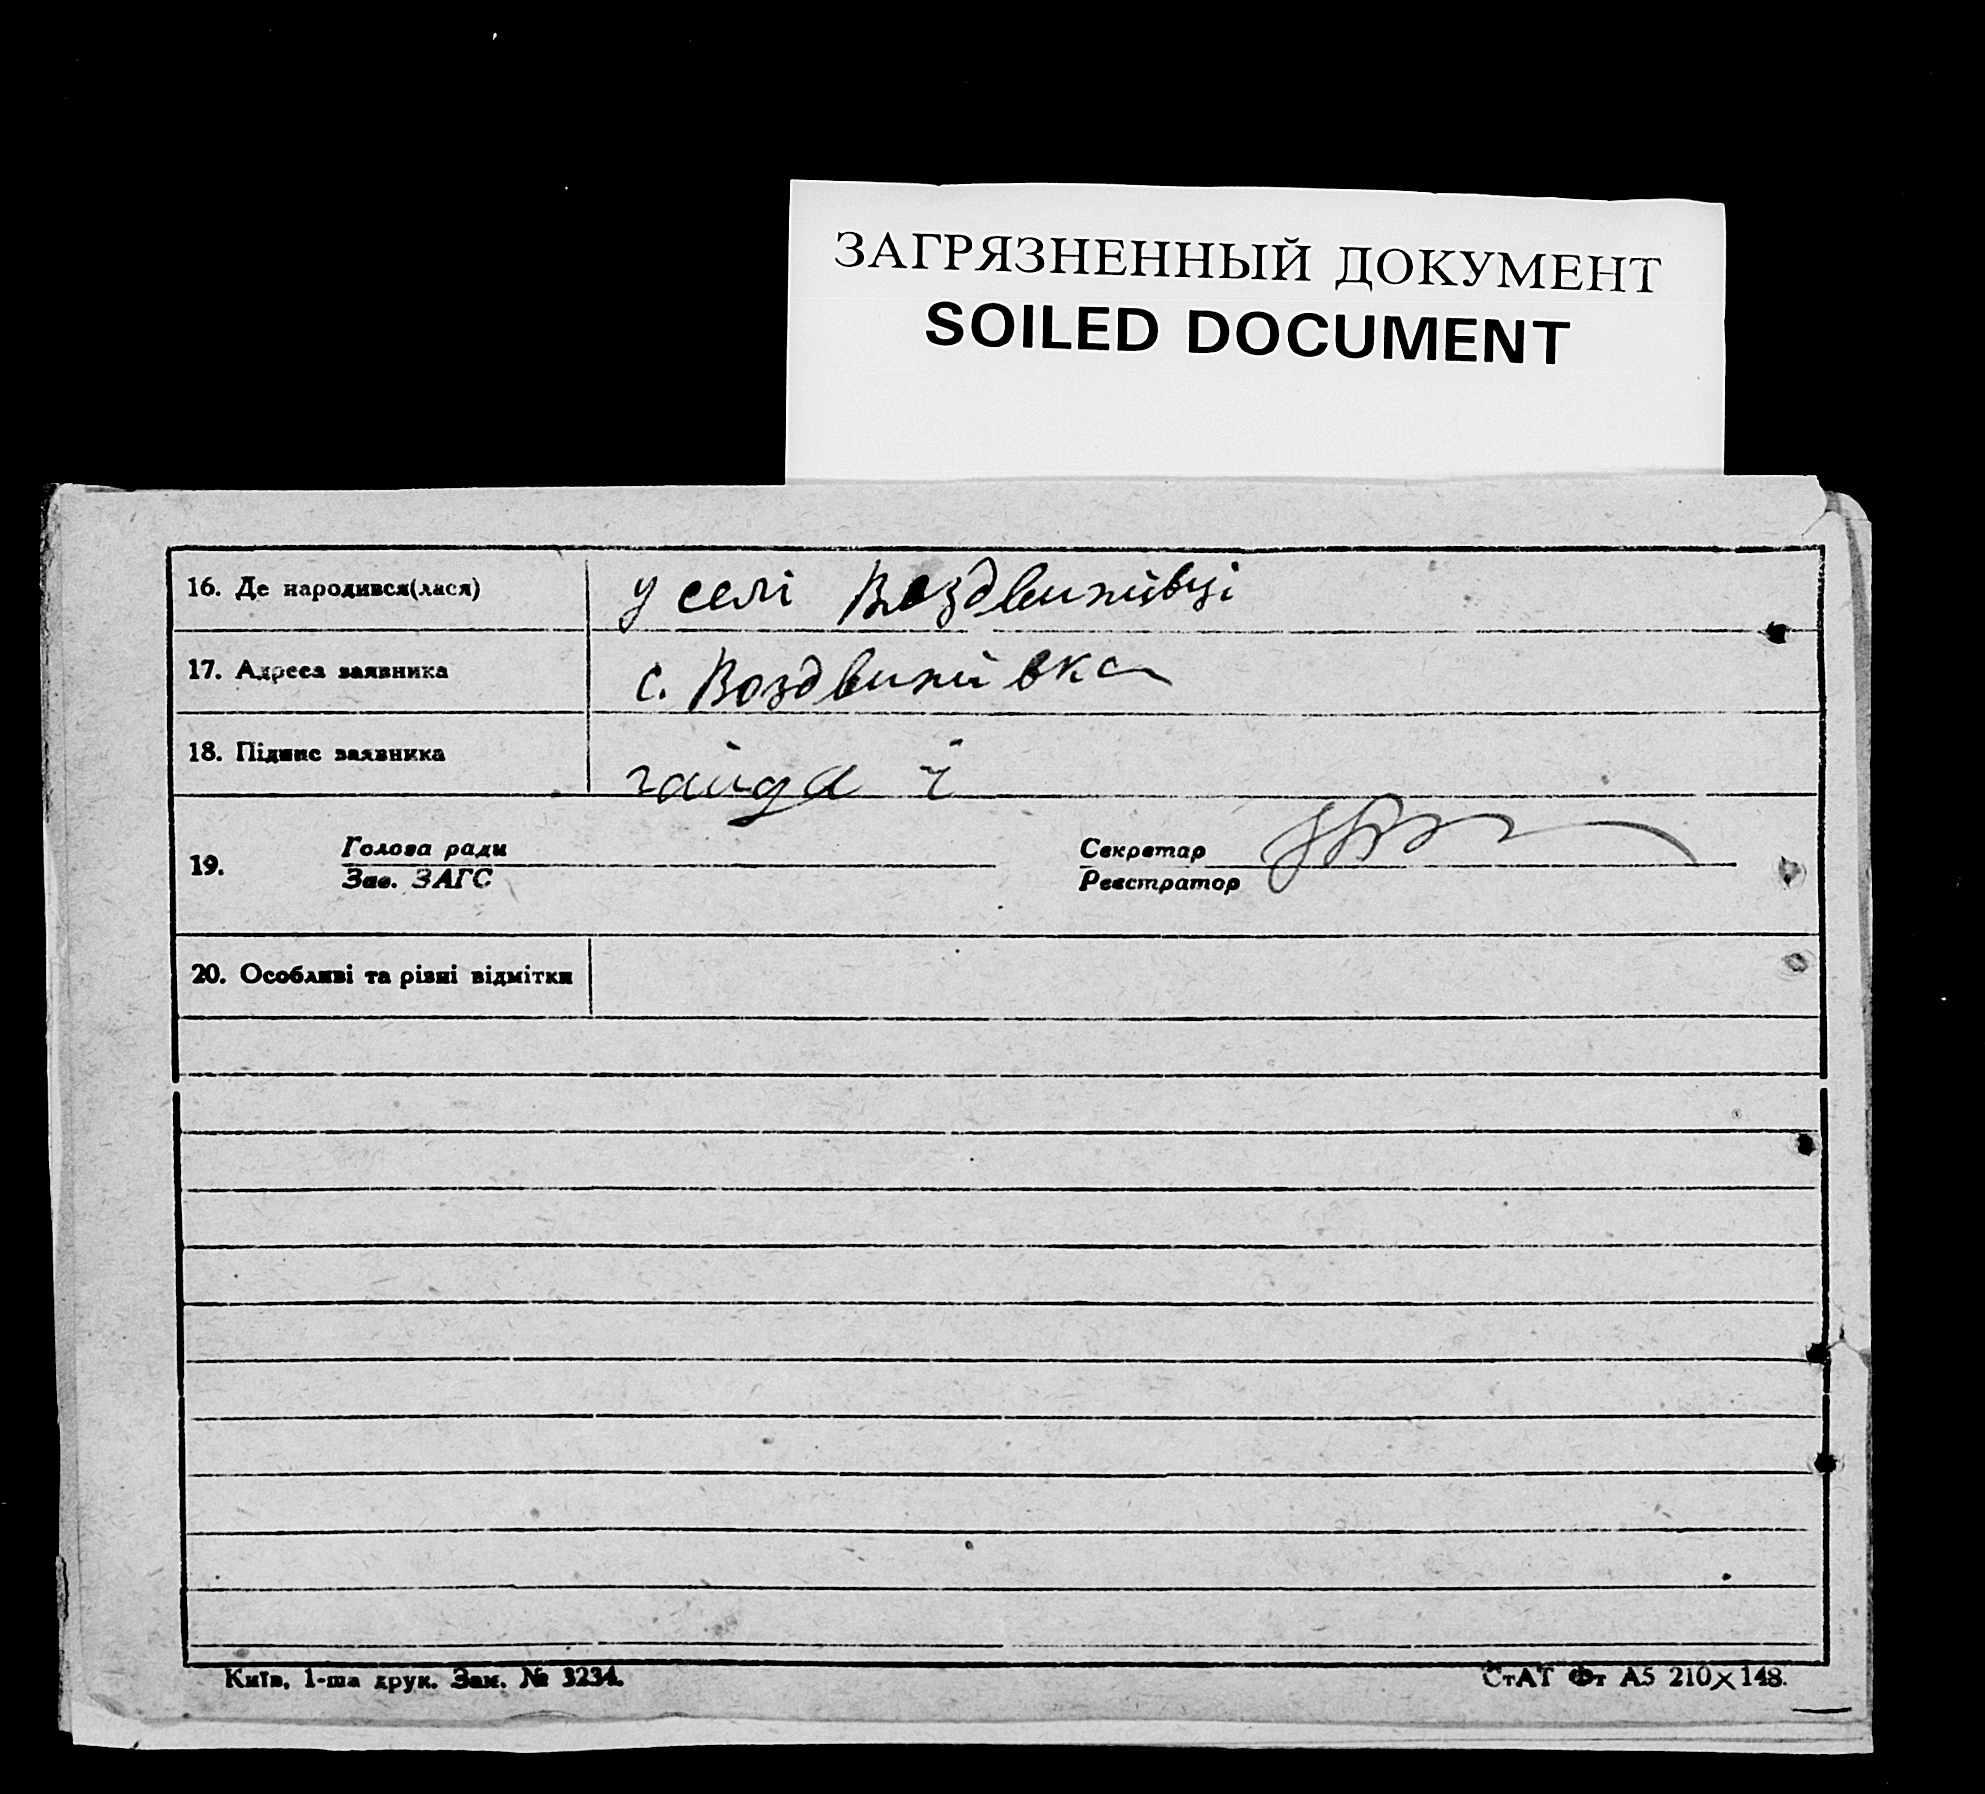 ЗАГРЯЗНЕННЫЙ ДОКУМЕНТ
SOILED DOCUMENT
16. Де народився(лася) у селі Воздвижівці
17. Адреса заявника с. Воздвижівка
18. Підпис заявника гайда ї
19. Голова ради Секретар
Зав. ЗАГС Реєстратор
20. Особливі та різні відмітки
Київ, 1-ша друк. Зам. № 3234.
СтАТ Фт А5 210×148.